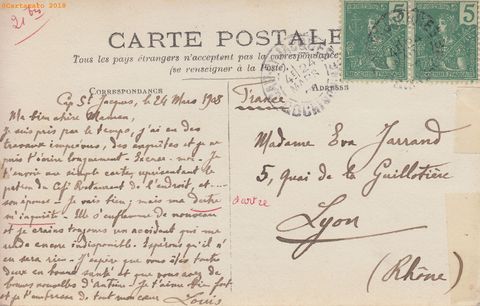 ©Cartarato 2019
21 bis
CARTE POSTALE
Tous les pays étrangers n'acceptent pas la correspondance
(se renseigner à la Poste)
CORRESPONDANCE
ADRESSE
5
5
24
MARS
Cap St Jacques, le 24 Mars 1908
Ma bien chère Maman,
Je suis pris par le temps, j'ai eu des
travaux imprévus, des enquêtes et je ne
puis t'écrire longuement. Excuse-moi. Je
t'envoie une simple carte, représentant le
patron du Café Restaurant de l'endroit, et
son épouse. Je vais bien; mais ma dartre
m'inquiète. Elle s'enflamme de nouveau
et je crains toujours un accident qui me
rende encore indisponible. Espérons qu'il n'
en sera rien. J'espère que vous êtes toutes
deux en bonne santé et que vous avez de
bonnes nouvelles d'Antoine. Je t'aime bien fort
et je t'embrasse de tout mon cœur. Louis
dartre
France
Madame Eva Jarrand
5, Quai de la Guillotière
Lyon
(Rhône)